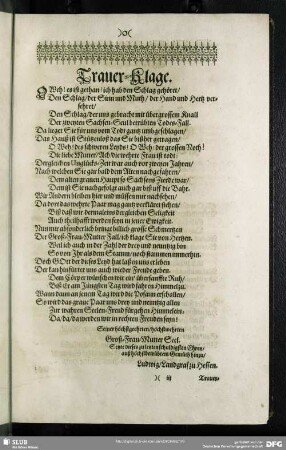 )o(
Trauer-Klage.
O Weh! es ist gethan / ich hab den Schlag gehöret /
Den Schlag / der Sinn und Muth / der Hand und Hertz versehret /
Den Schlag / der uns gebracht mit übergrossem Knall
Der zweiten Sachsen-Seul betrübten Todes-Fall.
Da lieget Sie für uns vom Todt gantz umbgeschlagen /
Das Hauß ist Stützenloß das Sie bißher getragen /
O Weh / des schweren Leyds! O Weh / der grossen Noth!
Die liebe Mutter / Ach die wehrte Frau ist todt:
Dergleichen Unglücks-Zeit war auch vor zweyen Jahren /
Nach welchen Sie gar bald dem Alten nachgefahren /
Dem alten grauen Haupt so Sachsens Zierde war /
Dem ist Sie nachgefolgt auch gar biß uff die Bahr.
Wir Andern bleiben hier und müssen nur nachsehen /
Da dort das wehrte Paar mag gantz verklähret stehen /
Biß daß wir dermaleins dergleichen Seligkeit
Auch theilhafft werden seyn in jener Ewigkeit.
Nun mir absonderlich bringt billich grosse Schmertzen
Der Groß-Frau-Mutter Fall / ich klage Sie von Hertzen.
Weil ich auch in der Zahl der drey und zwantzig bin
So von Ihr als dem Stamm / noch stammen immerhin.
Doch Gott der dieses Leyd hat lassen uns erleben
Der kan hinfürter uns auch wieder Freude geben.
Dem Cörper wünschen wir eine übersanffte Ruh /
Biß Er am Jüngsten Tag wird stehn in Himmel zu.
Wann dann an jenem Tag wird die Posaun erschallen /
So wird das graue Paar uns drey und zwantzig allen
Zur wahren Seelen-Freud fürgehen Himmelein:
Da / da / da werden wir in rechten Freuden seyn!
Seiner höchstgeehrten / höchstwehrten
Groß-Frau-Mutter Seel.
Ludwig / Landgraf zu Hessen.
)( iij
Trauer-
SLUB
DFG